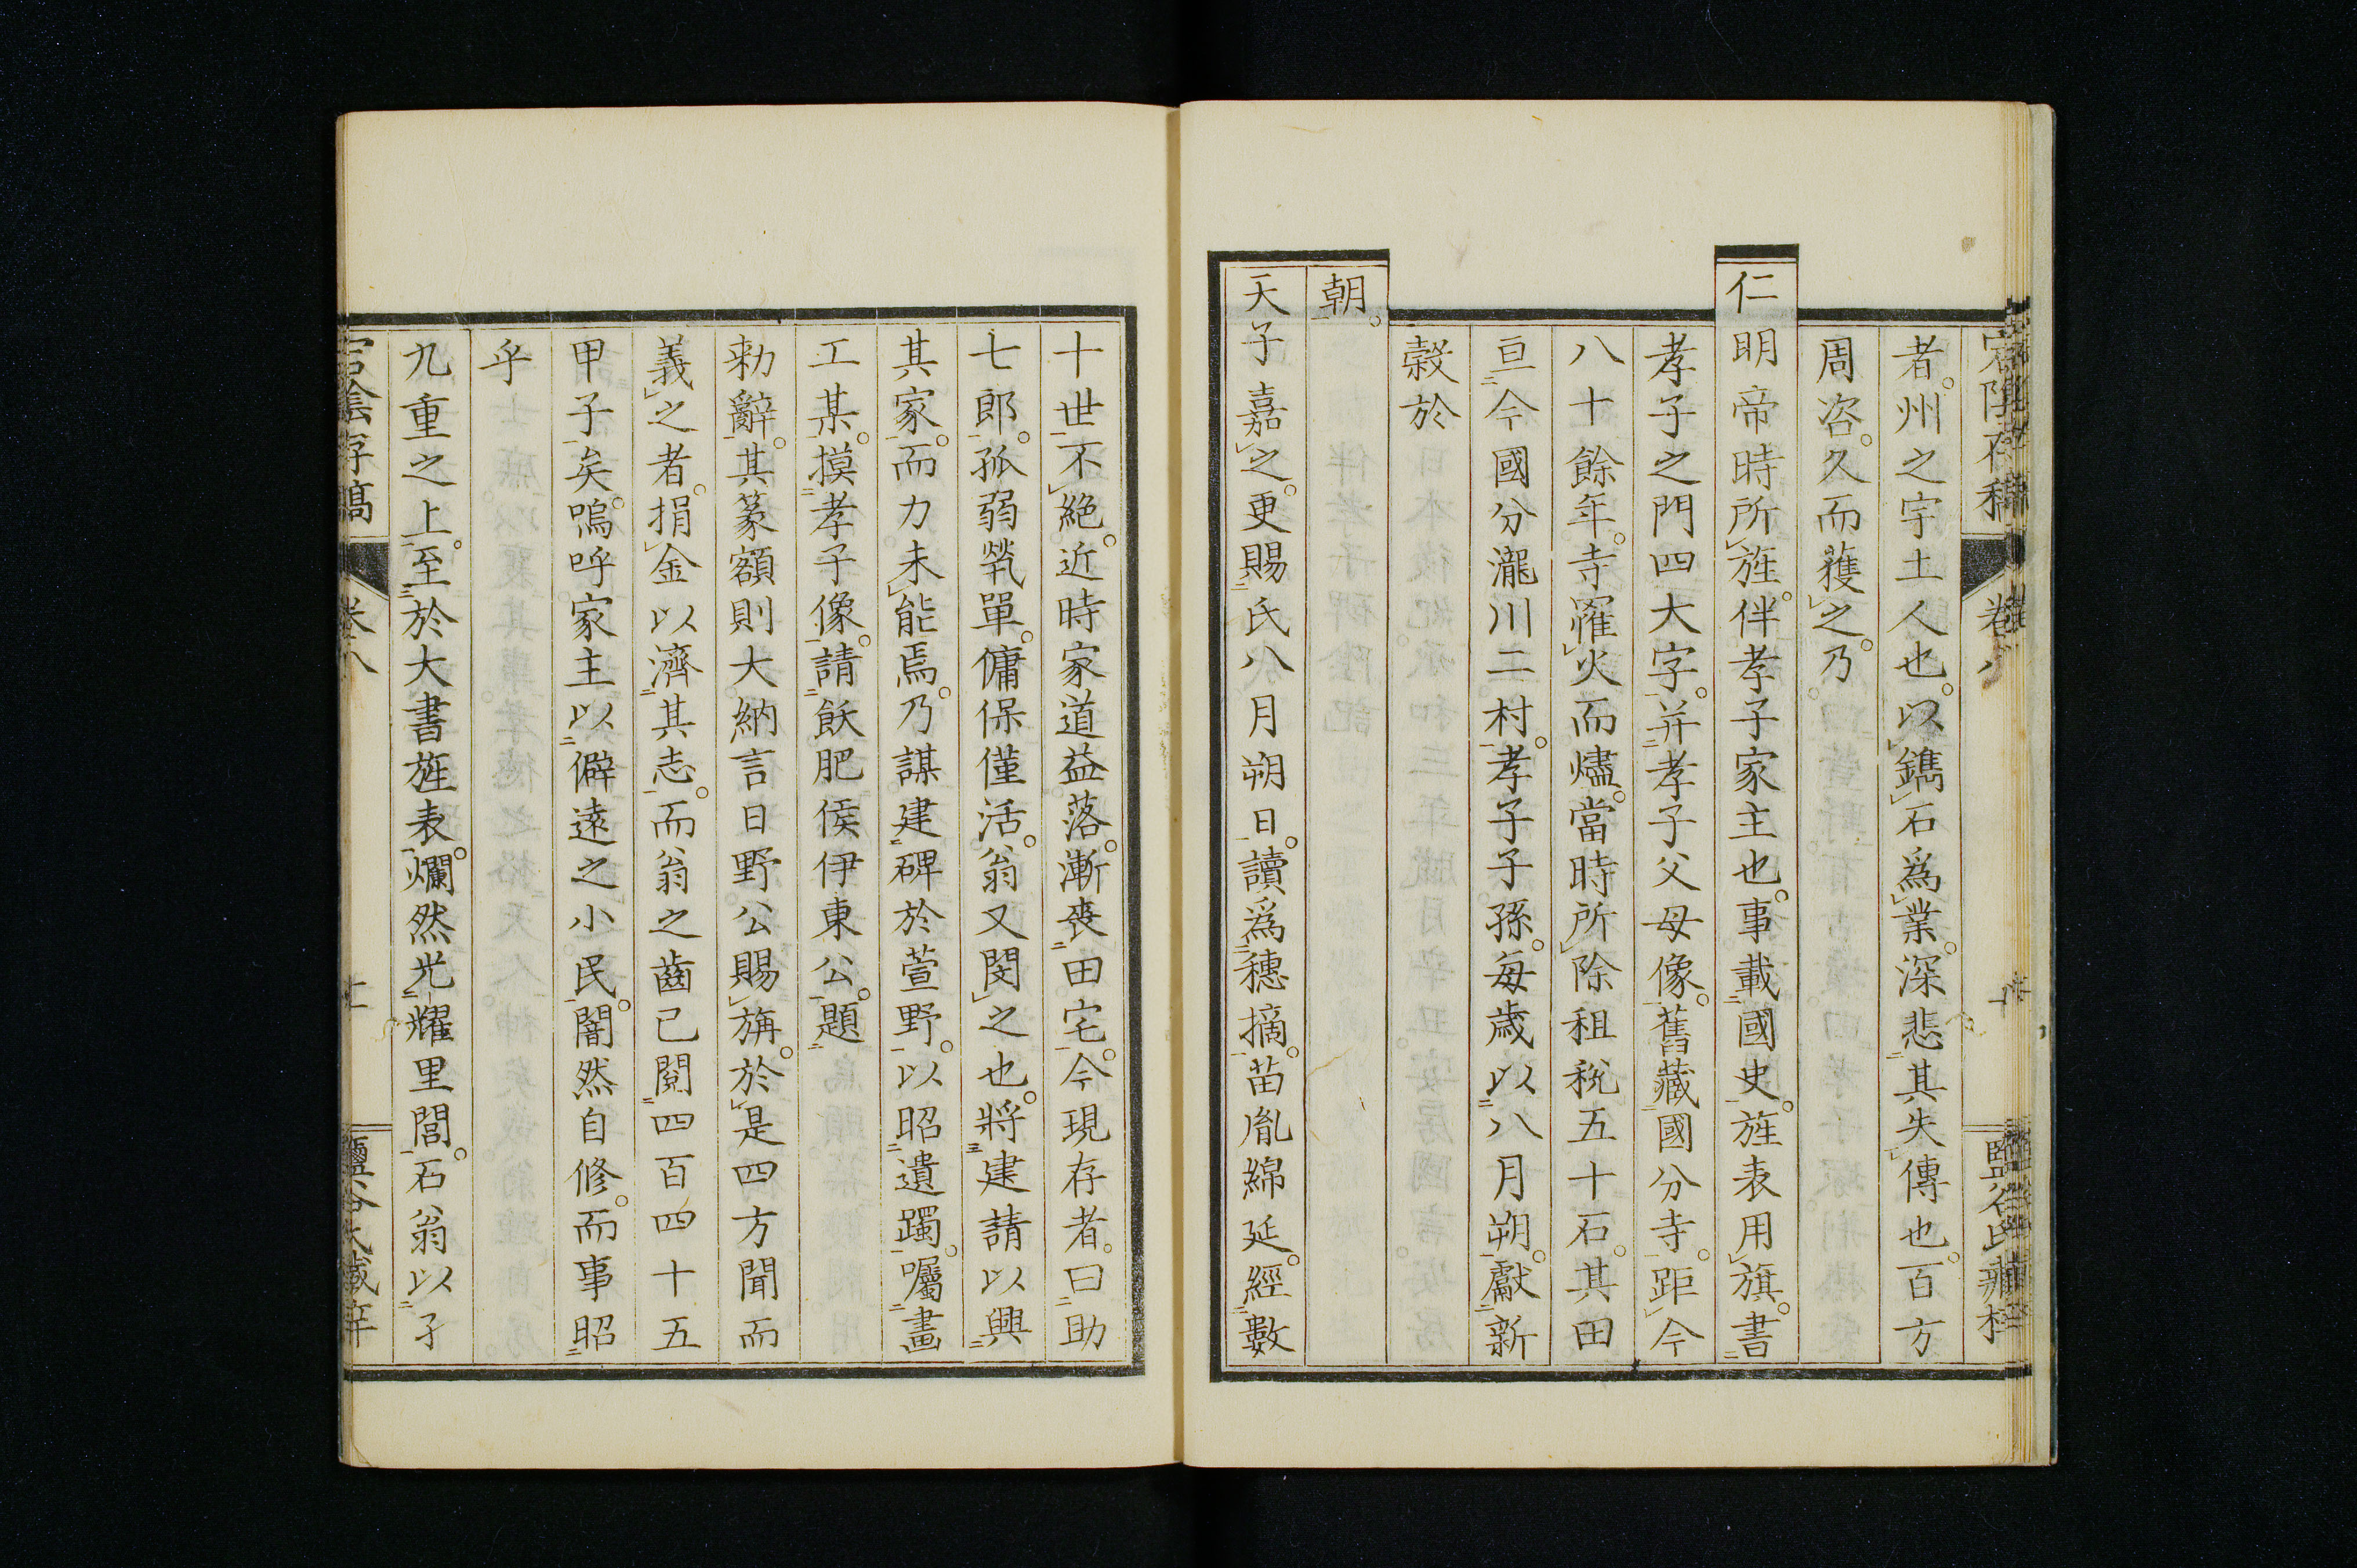 者。州之宇土人也。以鐫石爲業。深悲其失傳也。百方
周咨。久而獲之。乃
仁明帝時所旌。伴孝子家主也。事載國史。旌表用旗。書
孝子之門四大字。并孝子父母像。舊藏國分寺。距今
八十餘年。寺罹火而燼。當時所除租稅五十石。其田
亘今國分瀧川二村。孝子子孫。每歲以八月朔。獻新
穀於
朝。
天子嘉之。更賜氏八月朔日。讀爲穗摘。苗胤綿延。經數
十世不絕。近時家道益落。漸喪田宅。今現存者。曰助
七郎。孤弱煢單。傭保僅活。翁又閔之也。將建請以興
其家。而力未能焉。乃謀建碑於萱野。以昭遺躅。囑畫
工某。摸孝子像。請飫肥侯伊東公。題
勅辭。其篆額則大納言日野公賜旃。於是四方聞而
義之者。捐金以濟其志。而翁之齒已閱四百四十五
甲子矣。嗚呼家主以僻遠之小民。闇然自修。而事昭
乎
九重之上。至於大書旌表。爛然光耀里閭。石翁以孑
卷八